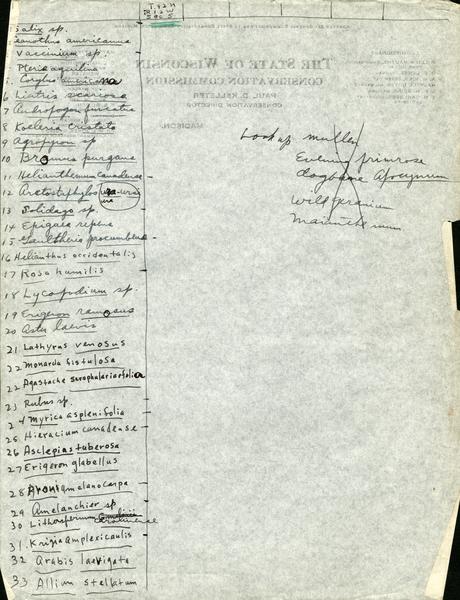 T32N
R12W
Sec 5
Salix sp.
Ceanothus americanus
Vaccinium sp.
Pteris aquilina
5. Corylus americana
6 Liatris scariosa
7 Andropogon furcatus
8 Koeleria cristata
9 Agropyron sp
10 Bromus purgans
11 Helianthemum canadense
12 Arctostaphylos uva-ursi
13 Solidago sp.
14 Epigaea repens
15 Gaultheria procumbens
16 Helianthus occidentalis
17 Rosa humilis
18 Lycopodium sp.
19 Erigeron ramosus
20 Aster laevis
21 Lathyrus venosus
22 Monarda fistulosa
22 Agastache scrophulariaefolia
23 Rubus sp.
24 Myrica asplenifolia
25 Hieracium canadense
26 Asclepias tuberosa
27 Erigeron glabellus
28 Aronia melanocarpa
29 Amelanchier sp
30 Lithospermum caroliniense
31. Krigia amplexicaulis
32 Arabis laevigata
33 Allium stellatum
THE STATE OF WISCONSIN
CONSERVATION COMMISSION
PAUL D. KELLETER
CONSERVATION DIRECTOR
MADISON
Look up mullen
Evening primrose
dogbane Apocynum
Wild geranium
Maianthemum